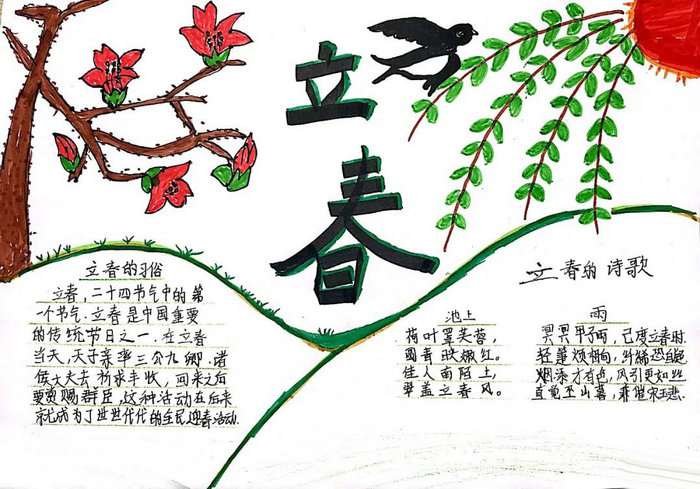 立春
立春的习俗
立春，二十四节气中的第
一个节气.立春是中国重要
的传统节日之一.在立春
当天，天子亲率三公九卿.诸
侯大夫去祈求丰收，回来之后
要赏赐群臣，这种活动在后来
就成为了世世代代的全民迎春活动.
立春的诗歌
池上
荷叶罩芙蓉，
圆青映嫩红。
佳人南陌上，
翠盖立春风。
雨
冥冥甲子雨，已度立春时.
轻烦相向，纤恐自疑
烟添才有色，风引更如丝
直觉巫山暮，兼催宋玉悲.